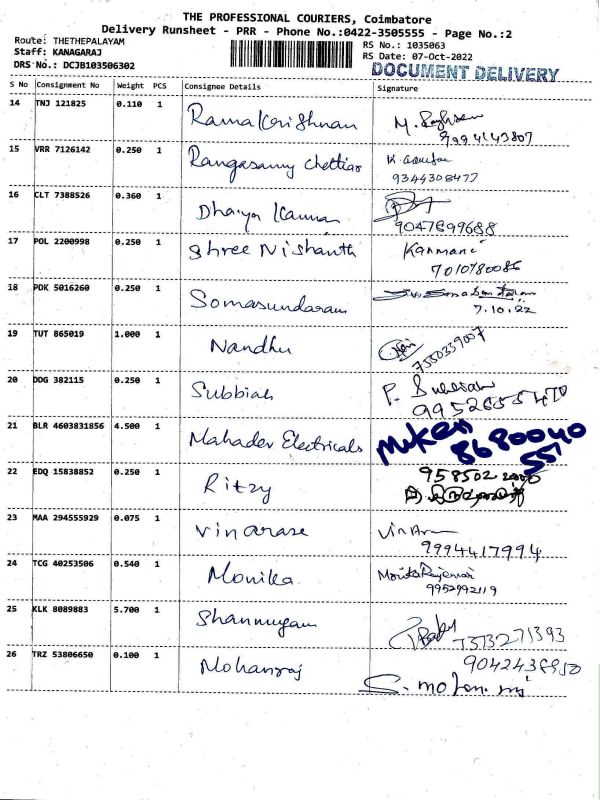 THE PROFESSIONAL COURIERS, Coimbatore
Delivery Runsheet - PRR - Phone No.:0422-3505555 - Page No.:2
Route: THETHEPALAYAM
Staff: KANAGARAJ
DRS No.: DCJB103506302
RS No.: 1035063
RS Date: 07-Oct-2022
DOCUMENT DELIVERY
S No Consignment No Weight PCS Consignee Details Signature
14 TNJ 121825 0.110 1 Ramakrishnan
9994143807
15 VRR 7126142 0.250 1 Rangasamy Chettiar
9344308477
16 CLT 7388526 0.360 1 Dhaya Kannan
9047699688
17 POL 2200998 0.250 1 Shree Nishanth Kanmani
7010780086
18 PDK 5016260 0.250 1 Somasundaram
7.10.22
19 TUT 865019 1.000 1 Nandhu
7550339007
20 DDG 382115 0.250 1 Subbiah
21 BLR 4603831856 4.500 1 Mahadev Electricals
8680040
55
22 EDQ 15838852 0.250 1 Ritzy
23 MAA 294555929 0.075 1 Vinarase
9994417994
24 TCG 40253506 0.540 1 Monika
9952992119
25 KLK 8089883 5.700 1 Shanmugam
7373271393
26 TRZ 53806650 0.100 1 Mohanraj